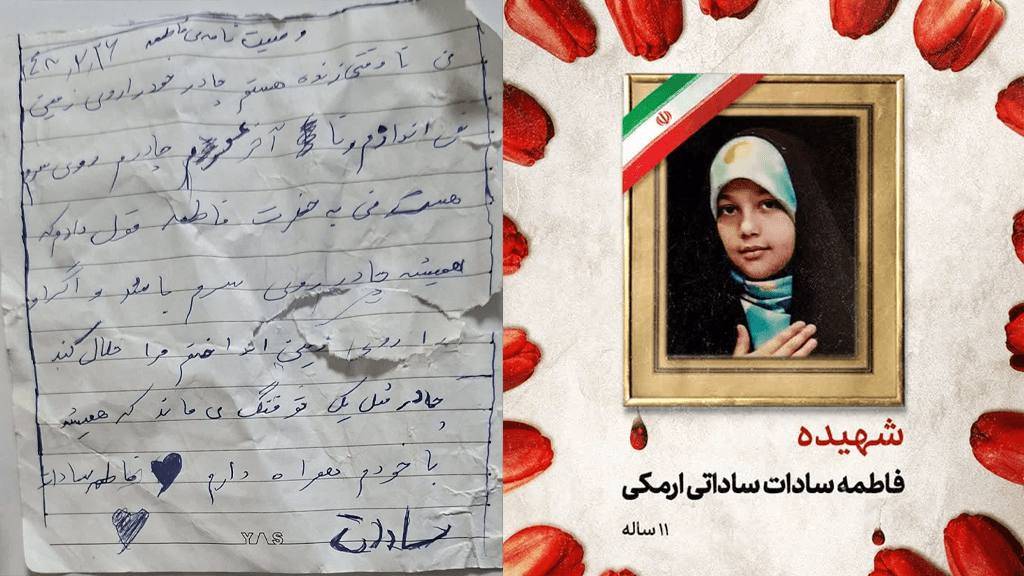 وصیت نامه ی فاطمه
من تا وقتی زنده هستم چادر خودرا روی زمین
نمی اندازم و تا آخر عمرم چادرم روی سرم
هست من به حضرت فاطمه قول دادم که
همیشه چادر روی سرم باشد و اگر او
را روی زمین انداختم مرا حلال کند
چادر مثل یک تفنگ می ماند که همیشه
با خودم همراه دارم فاطمه سادات
سادات
YAS
شهیده
فاطمه سادات ساداتی ارمکی
۱۱ ساله